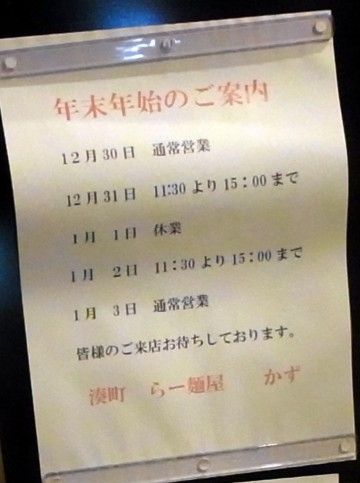 年末年始のご案内
12月30日 通常営業
12月31日 11:30より15:00まで
1月 1日 休業
1月 2日 11:30より15:00まで
1月 3日 通常営業
皆様のご来店お待ちしております。
湊町 らー麺屋 かず